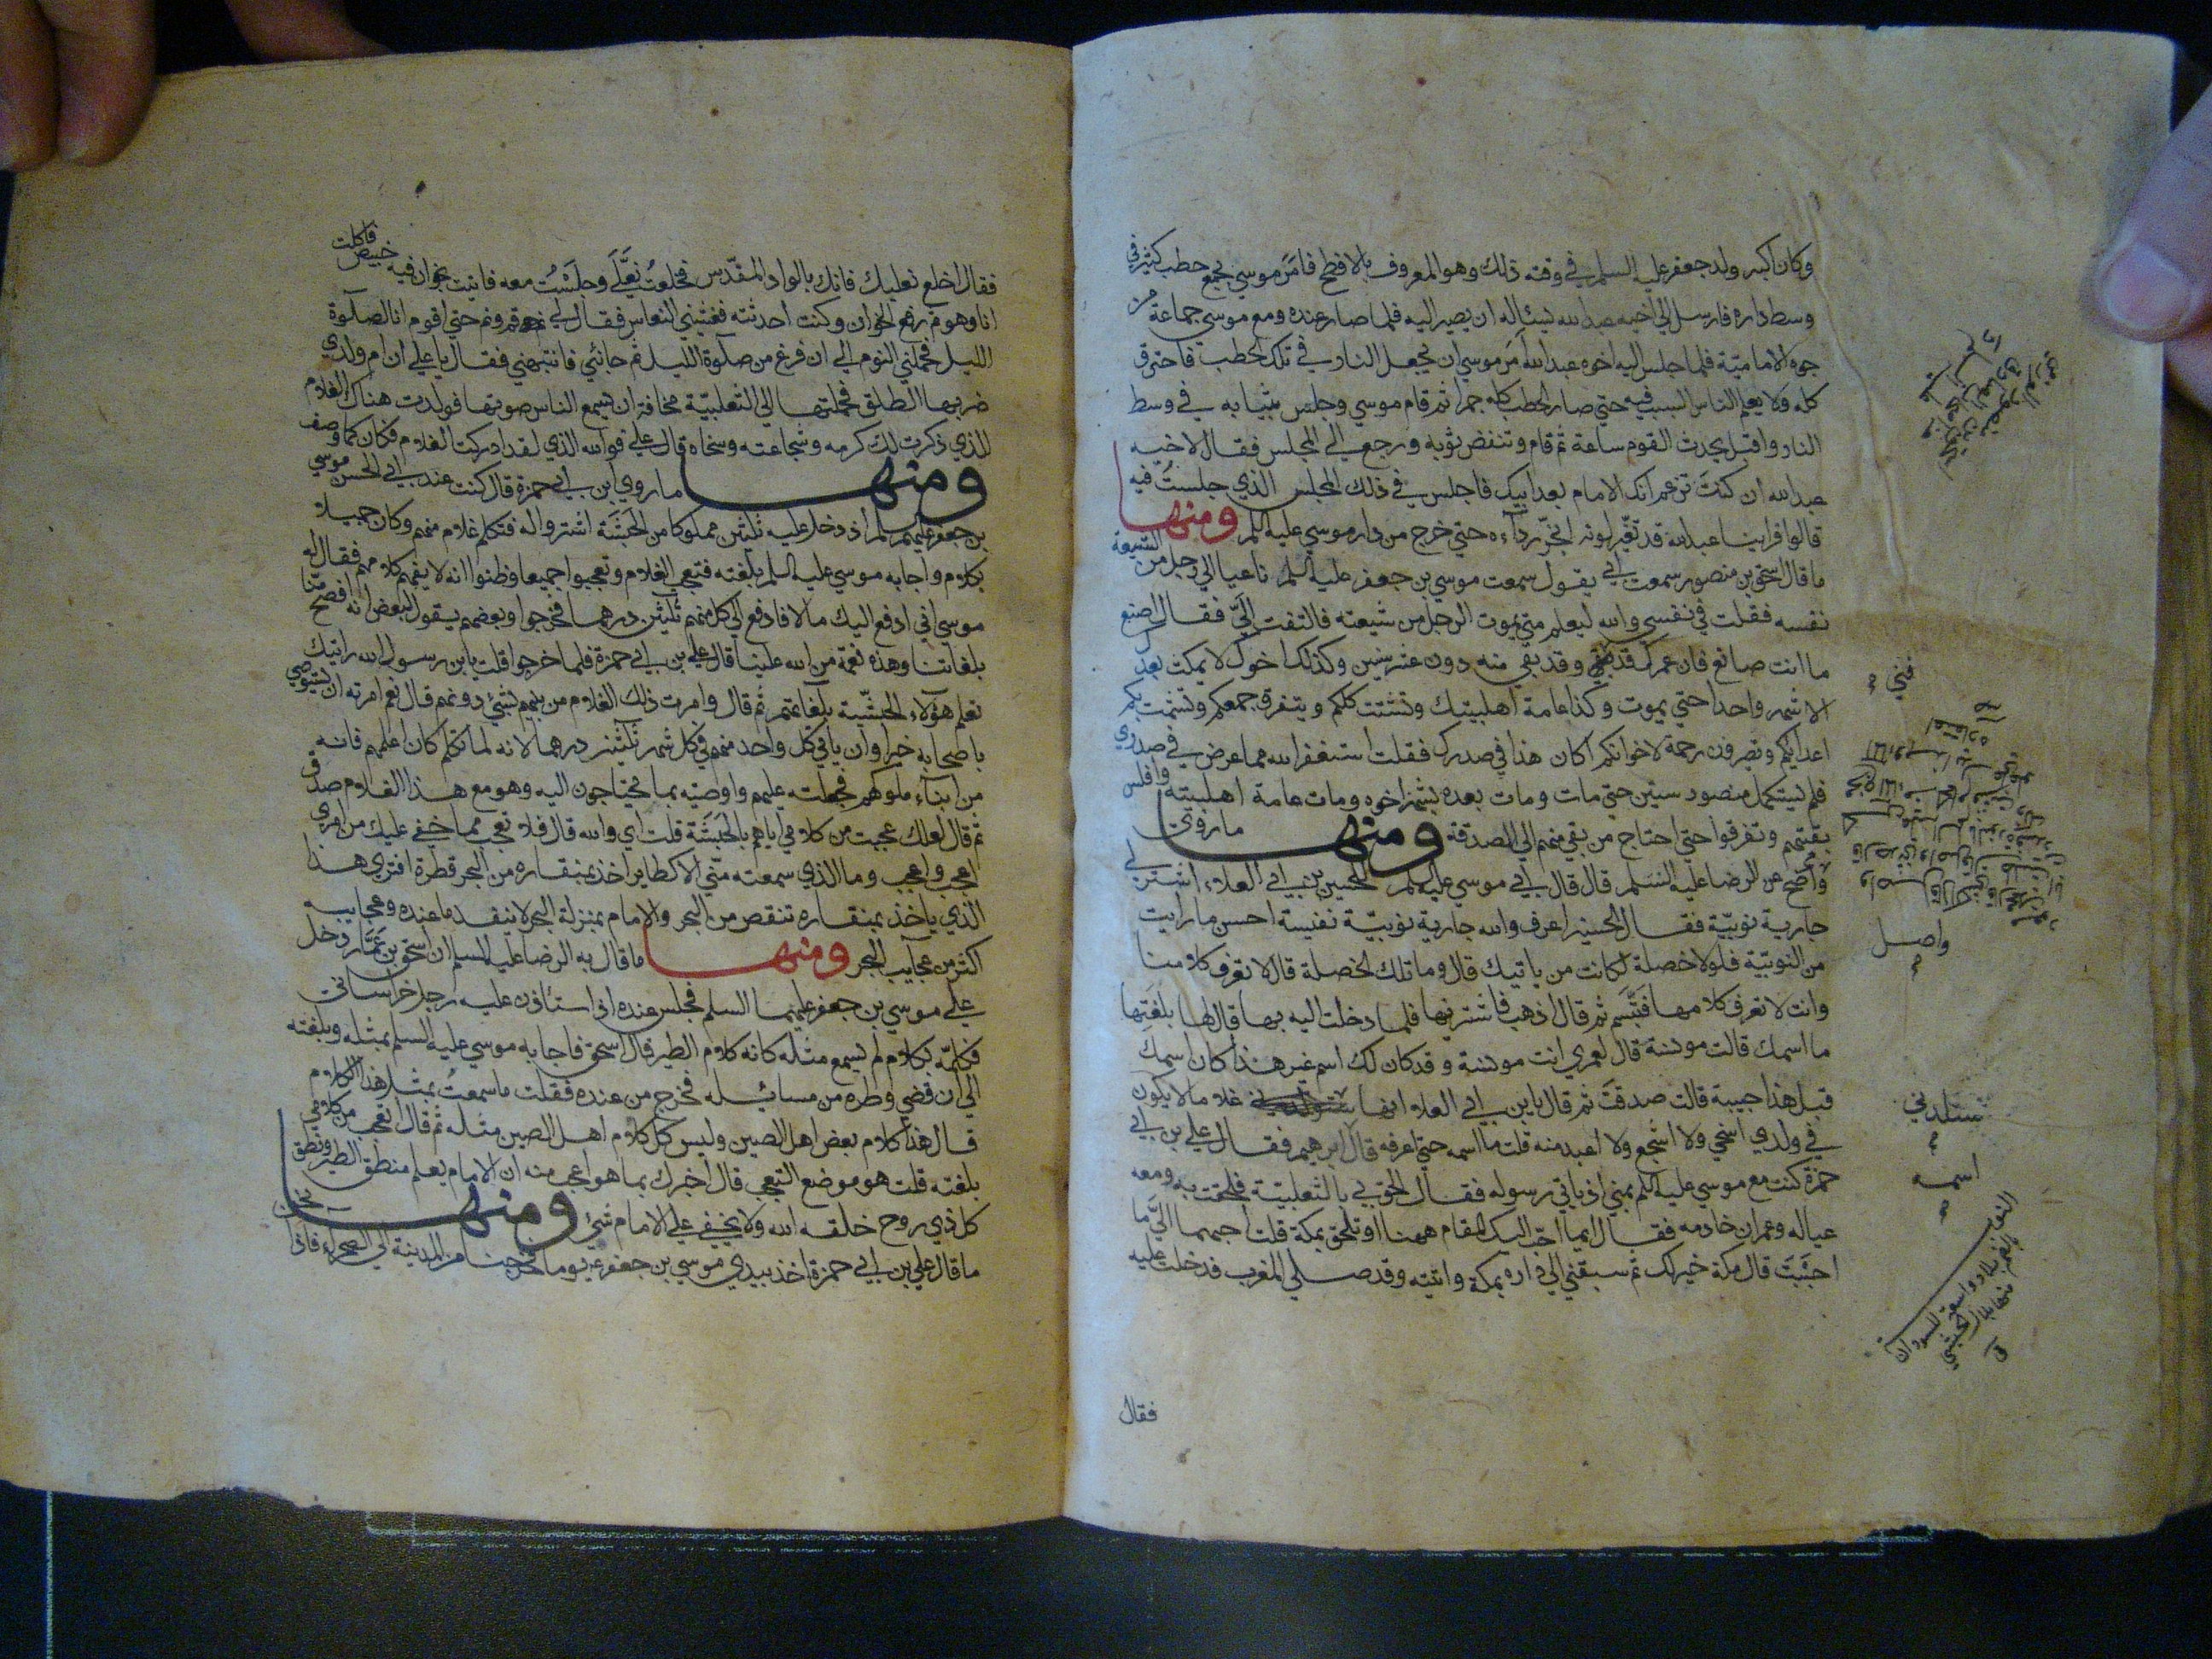 وكان اكبر ولد جعفر عليه السلم في وقته ذلك وهو المعروف بالافطح فامر موسي بجمع حطب كثير في
وسط داره فارسل الي اخيه عبد الله يسئاله ان يصير اليه فلما صار عنده ومع موسي جماعة من
جوه الامامية فلما جلس اليه اخوه عبد الله امر موسي ان يجعل النار في تلك الحطب فاحترق
كله ولا يعلم الناس السبب فيه حتي صار الحطب كله جمرا ثم قام موسي وجلس بثيابه في وسط
النار واقبل يحدث القوم ساعة ثم قام وتنفض ثوبه ورجع الي المجلس فقال لاخيه
عبد الله ان كنت تزعم انك الامام بعد ابيك فاجلس في ذلك المجلس الذي جلست فيه
قالوا فراينا عبد الله قد تغير لونه ثم يجر رداءه حتي خرج من دار موسي عليه السلم ومنها
ما قال اسحق بن منصور سمعت ابي يقول سمعت موسي بن جعفر عليه السلم ناعيا الي رجل من الشيعة
نفسه فقلت في نفسي والله ليعلم متي يموت الرجل من شيعته فالتفت الي فقال اصنع
ما انت صانع فان عمرك قد وقد بقي منه دون عشر سنين وكذلك اخوك لا يمكث بعدك
الا شهر واحدا حتي يموت وكذا عامة اهل بيتك وتشتت كلكم ويتفرق جمعكم وتشمت بكم
اعدايكم وتصرفون رحمة لاخوانكم اكان هذا في صدرك فقلت استغفر الله مما عرض في صدري
فلم يستكمل منصور سنتين حتي مات ومات بعده بشهر اخوه ومات عامة اهل بيته وافلس
بقيتهم وتفرقوا حتي احتاج من بقي منهم الي الصدقة ومنها ما روي
واضح عن الرضا عليه السلم قال قال ابي موسي عليه السلم للحسين بن ابي العلاء اشتر لي
جارية نوبية فقال الحسين اعرف والله جارية نوبية نفيسة احسن ما رايت
من النوبية فلولا خصلة لكانت من ياتيك قال وما تلك الخصلة قال لا تعرف كلامنا
وانت لا تعرف كلامها فتبسم ثم قال اذهب فاشترنها فلما دخلت اليه بها قال لها بلغتها
ما اسمك قالت مونسة قال لعمري انت مونسة وقد كان لك اسم غير هذا كان اسمك
قبل هذا حبيبة قالت صدقت ثم قال يابن ابي العلا انها غلاما لا يكون
في ولدي اسخي ولا اشجع ولا اعبد منه قلت ما اسمه حتي اعرفه قال ابرهيم فقال علي بن ابي
حمزة كنت مع موسي عليه السلم بمني اذ ياتي رسوله فقال الحق بي بالثعلبية فلحقت به ومعه
عياله وعمران خادمه فقال ايما احب اليك المقام ههنا او تلحق بمكة قلت احبهما الي ما
احببت قال مكة خير لك ثم سبقني الي داره بمكة واتيته وقد صلي المغرب فدخلت عليه
فني
واصل
ستلدني
اسمه
فقال
فقال اخلع نعليك فانك بالواد المقدس فخلعت نعلي وجلست معه فاتيت بخوان فيه خبيص فاكلت
انا وهو ثم رفع الخوان وكنت احدثه فغشيني النعاس فقال لي قم ونم حتي اقوم انا لصلوة
الليل فحملني النوم الي ان فرغ من صلوة الليل ثم جائني فانتبهني فقال يا علي ان ام ولدي
ضربها الطلق فحملتها الي الثعلبية مخافة ان يسمع الناس صوتها فولدت هناك الغلام
الذي ذكرت لك كرمه وشجاعته وسخاه قال علي فوالله الذي لقد ادركت الغلام فكان كما وصف
ومنها ما روي ابن ابي حمزة قال كنت عند ابي الحسن موسي
بن جعفر عليهم السلم اذ دخل عليه ثلثين مملوكا من الحبشة اشتروا له فتكلم غلام منهم وكان جميلا
بكلام واجابه موسي عليه السلم بلغته فتعجب الغلام وتعجبوا جميعا وظنوا انه لا يفهم كلامهم فقال له
موسي اني ادفع اليك مالا فادفع الي كل منهم ثلثين درهما فخرجوا وبعضهم يقول لبعض انه افصح منا
بلغاتنا وهذه نعمة من الله علينا قال علي بن ابي حمزة فلما اخرجوا قلت يابن رسول الله رايتك
تعلم هؤلاء الحبشية بلغاتهم ثم قال وامرت ذلك الغلام من بينهم بشئ دونهم قال نعم امرته ان يستوصي
باصحابه خيرا وان ياتي كل واحد منهم في كل شهر ثلثين درهما لانه لما تكلم كان اعلمهم فانه
من ابناء ملوكهم فجعلته عليهم واوصيه بما يحتاجون اليه وهو مع هذا الغلام صدق
ثم قال لعلك عجبت من كلامي اياهم بالحبشة قلت اي والله قال فلا تعجب مما خفي عليك من امري
اعجب واعجب وما الذي سمعته مني الا كطاير اخذ بمنقاره من البحر قطرة افتري هذا
الذي ياخذ بمنقاره تنقص من البحر والامام بمنزلة البحر لا ينفد ما عنده وعجايبه
اكثر من عجايب البحر ومنها ما قال به الرضا عليه السلم ان اسحق بن عمار دخل
علي موسي بن جعفر عليهما السلم فجلس عنده اذ استاذن عليه رجل خراساني
فكلمه بكلام لم يسمع مثله كانه كلام الطير قال اسحق فاجابه موسي عليه السلم بمثله وبلغته
الي ان قضي وطره من مسائله فخرج من عنده فقلت ما سمعت بمثل هذا الكلام
قال هذا كلام بعض اهل الصين وليس كل كلام اهل الصين مثله ثم قال اتعجب من كلامي
بلغته قلت هو موضع التعجب قال اخبرك بما هو اعجب منه ان الامام يعلم منطق الطير ونطق
كل ذي روح خلقه الله ولا يخفي علي الامام شئ ومنها
ما قال علي بن ابي حمزة اخذ بيدي موسي بن جعفر ع يوما فخرجنا من المدينة الي الصحراء فاذا